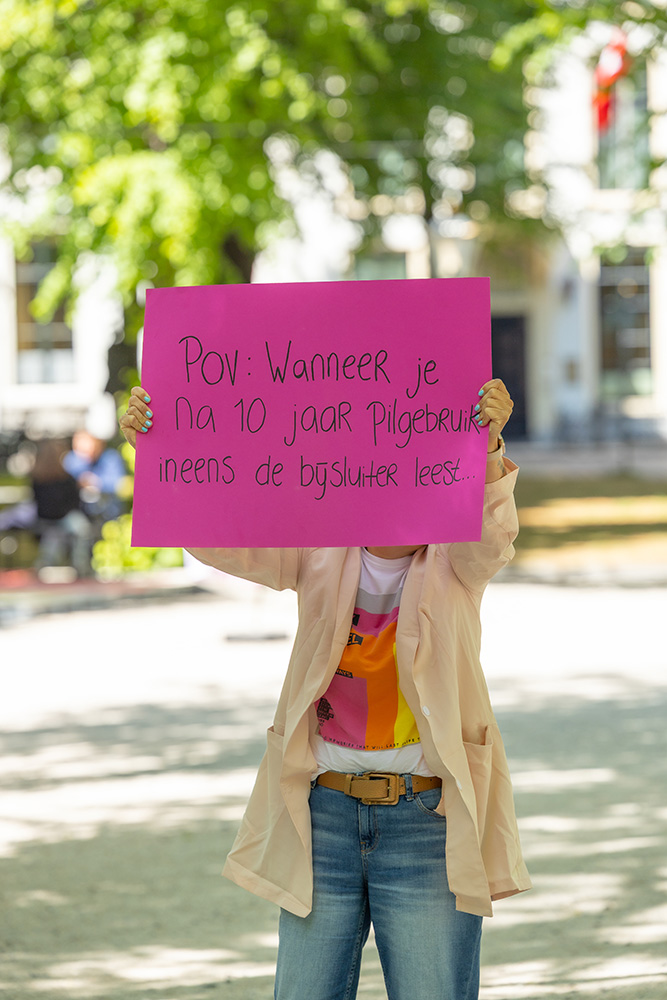 POV: Wanneer je
na 10 jaar pilgebruik
ineens de bijsluiter leest...